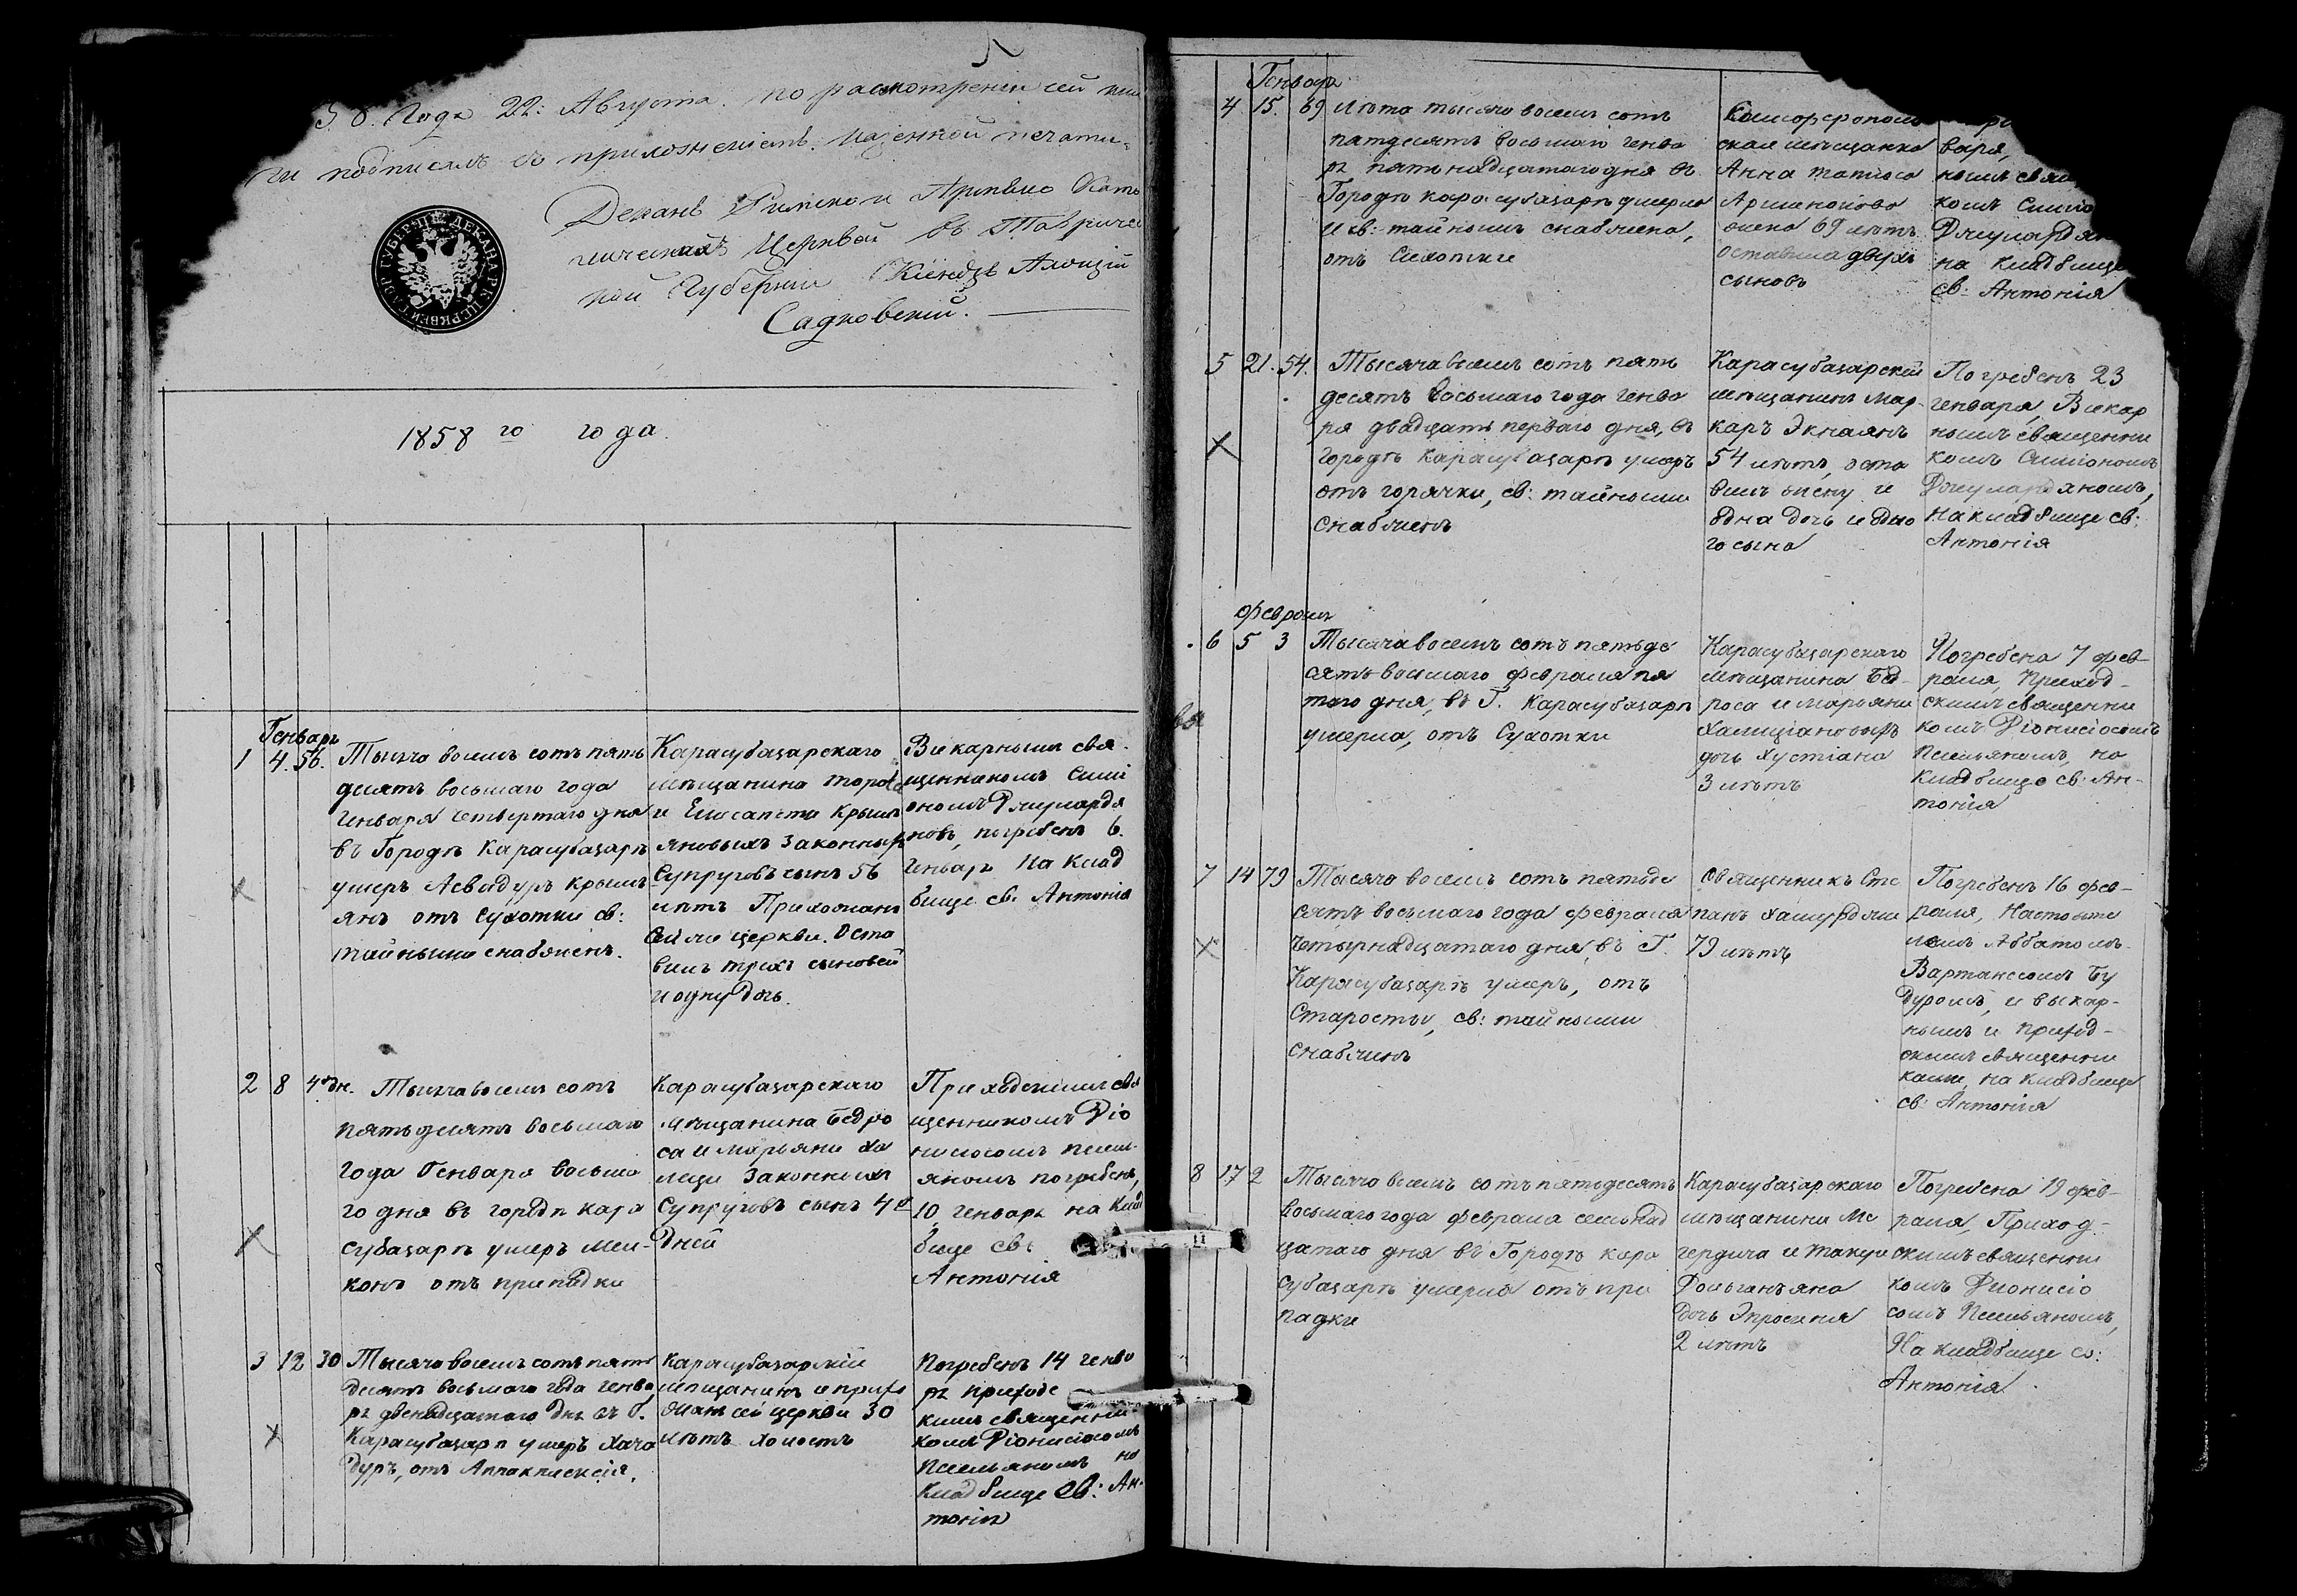 5
58. Года 22: Августа. по расмотрении сей кни
ги подписалъ съ приложеніемъ. казенной печати.
Деканъ Римско и Армяно Като
лическихъ Церквей въ Тавричес
кой Губерніи Ксіендзъ Алоизій
Садковскій.
1858 го года.
Генварь
1 4. 56. Тысяча восемь сотъ пять
десятъ восьмаго года
Генваря четвертаго дня
въ Городѣ Карасубазарѣ
умеръ Асвадуръ Крым
янъ отъ сухотки св:
тайнами снабженъ.
Карасубазарскаго
мѣщанина Тороса
и Елисапета Крым
яновыхъ законныхъ
супруговъ сынъ 56
лѣтъ Прихожанъ
сей же церкви. Оста
вилъ трехъ сыновей
и одну дочь.
Викарнымъ свя
щенникомъ Сими
ономъ Джулардя
новъ, погребенъ 6.
Генварь на клад
бище св. Антонія
2 8 4 дн. Тысяча восемь сотъ
пятьдесятъ восьмаго
года Генваря восьма
го дня въ городѣ Кара
субазарѣ умеръ Мел-
конъ отъ припадки
Карасубазарскаго
мѣщанина Бедро
са и Марьяни Ха
леци законныхъ
супруговъ сынъ 4
дней
Приходскимъ свя
щенникомъ Діо
нисіосомъ
яномъ погребенъ,
10 генварь на клад
бище св:
Антонія
3 12 30 Тысяча восемь сотъ пять
десятъ восьмаго года генва
рь двенадцатаго дня въ Г.
Карасубазарѣ умеръ Хача
дуръ, отъ Аппаплексія.
Карасубазарскій
мѣщанинъ и прихо
жанъ сей церкви 30
лѣтъ холостъ
Погребенъ 14 генва
рь приходс
кимъ священни
комъ Діонисіосомъ
на
кладбище св: Ан
тонія
Генварь
4 15. 69 Лѣта тысяча восемь сотъ
пятдесятъ восьмаго генва
рь пятьнадцатаго дня въ
Городѣ Карасубазарѣ умерла
и св: тайнами снабжена,
отъ сухотки
Симферополь
ская мѣщанка
Анна
жена 69 лѣтъ
оставила двухъ
сыновъ
варя,
нымъ свящ
комъ Симіо
Джулардян
на кладбище
св. Антонія
5 21. 54. Тысяча восемь сотъ пять
десятъ восьмаго года генва
ря двадцать перваго дня, въ
городѣ Карасубазарѣ умеръ
отъ горячки, св: тайнами
снабженъ
Карасубазарскій
мѣщанинъ Мар-
каръ Экмаянъ
54 лѣтъ, оста
вилъ жену и
одна дочь и одно
го сына
Погребенъ 23
генваря, Викар
нымъ священни
комъ Симіономъ
Джулардяномъ,
на кладбище св:
Антонія
Февраль
6 5 3 Тысяча восемь сотъ пятьде
сятъ восьмаго февраля пя
таго дня, въ Г. Карасубазарѣ
умерла, отъ сухотки
Карасубазарскаго
мѣщанина Бед-
роса и Марьяни
дочь Хустіана
3 лѣтъ
Погребена 7 фев-
раля, Приход-
скимъ священни
комъ Діонисіосомъ
на
кладбище св: Ан-
тонія
7 14 79 Тысяча восемь сотъ пятьде
сятъ восьмаго года февраля
четырнадцатаго дня, въ Г.
Карасубазарѣ умеръ, отъ
старости, св: тайнами
снабженъ
Священникъ Сте
панъ
79 лѣтъ
Погребенъ 16 фев-
раля, Настояте
лемъ Аббатомъ
Вартанесомъ Бу
дуромъ, и викар-
нымъ и приход-
скимъ священни
ками, на кладбище
св: Антонія
8 17 2 Тысяча восемь сотъ пятьдесятъ
восьмаго года февраля семьнад
цатаго дня въ Городѣ Кара
субазарѣ умерла отъ при
падки
Карасубазарскаго
мѣщанина Ме
гердича и
дочь Эпросиня
2 лѣтъ
Погребена 19 фев-
раля, Приход-
скимъ священни
комъ Дионисіо
сомъ
На кладбище св:
Антонія